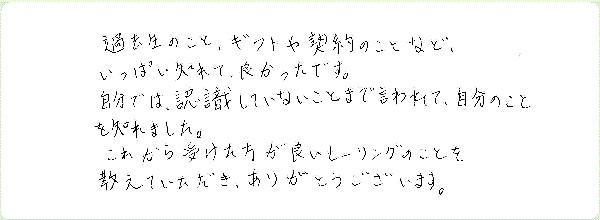 過去生のこと、ギフトや契約のことなど、
いっぱい知れて、良かったです。
自分では、認識していないことまで言われて、自分のこと
を知れました。
これから受けた方が良いヒーリングのことを
教えていただき、ありがとうございます。